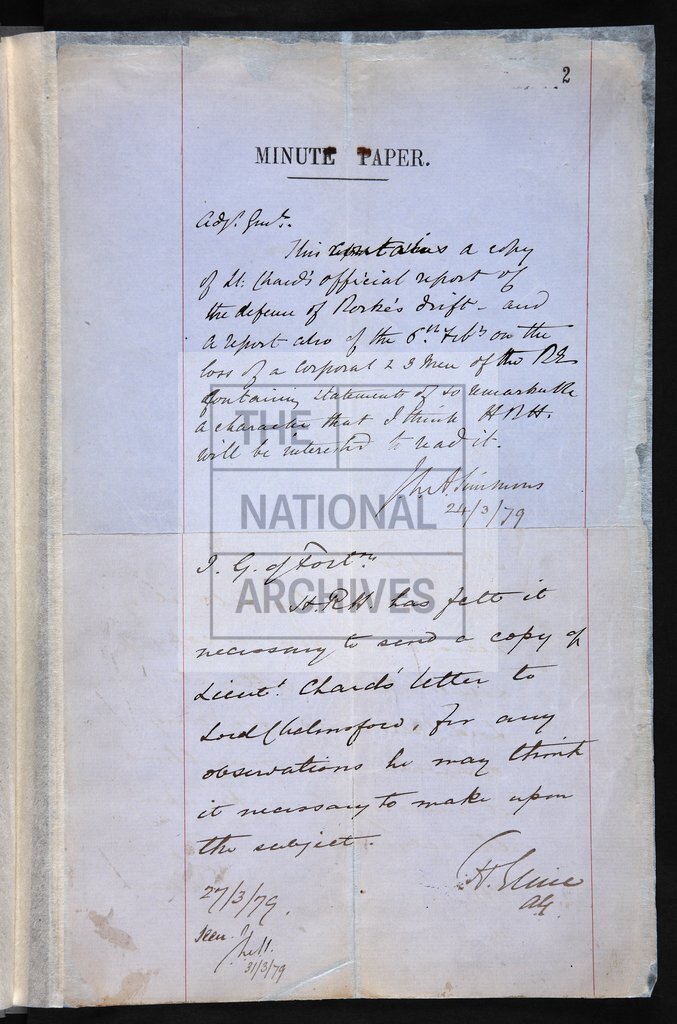 2
MINUTE PAPER.
Adjt. Genl.
This contains a copy
of Lt. Chard's official report of
the defence of Rorke's drift - and
a report also of the 6th Feby on the
loss of a Corporal & 3 Men of the RE
containing statements of so remarkable
a character that I think HRH.
will be interested to read it.
Simmons
24/3/79
I. G. of Fortns
H.R.H has felt it
necessary to send a copy of
Lieut. Chard's letter to
Lord Chelmsford, for any
observations he may think
it necessary to make upon
the subject.
27/3/79.
AG
Seen.
31/3/79
THE
NATIONAL
ARCHIVES